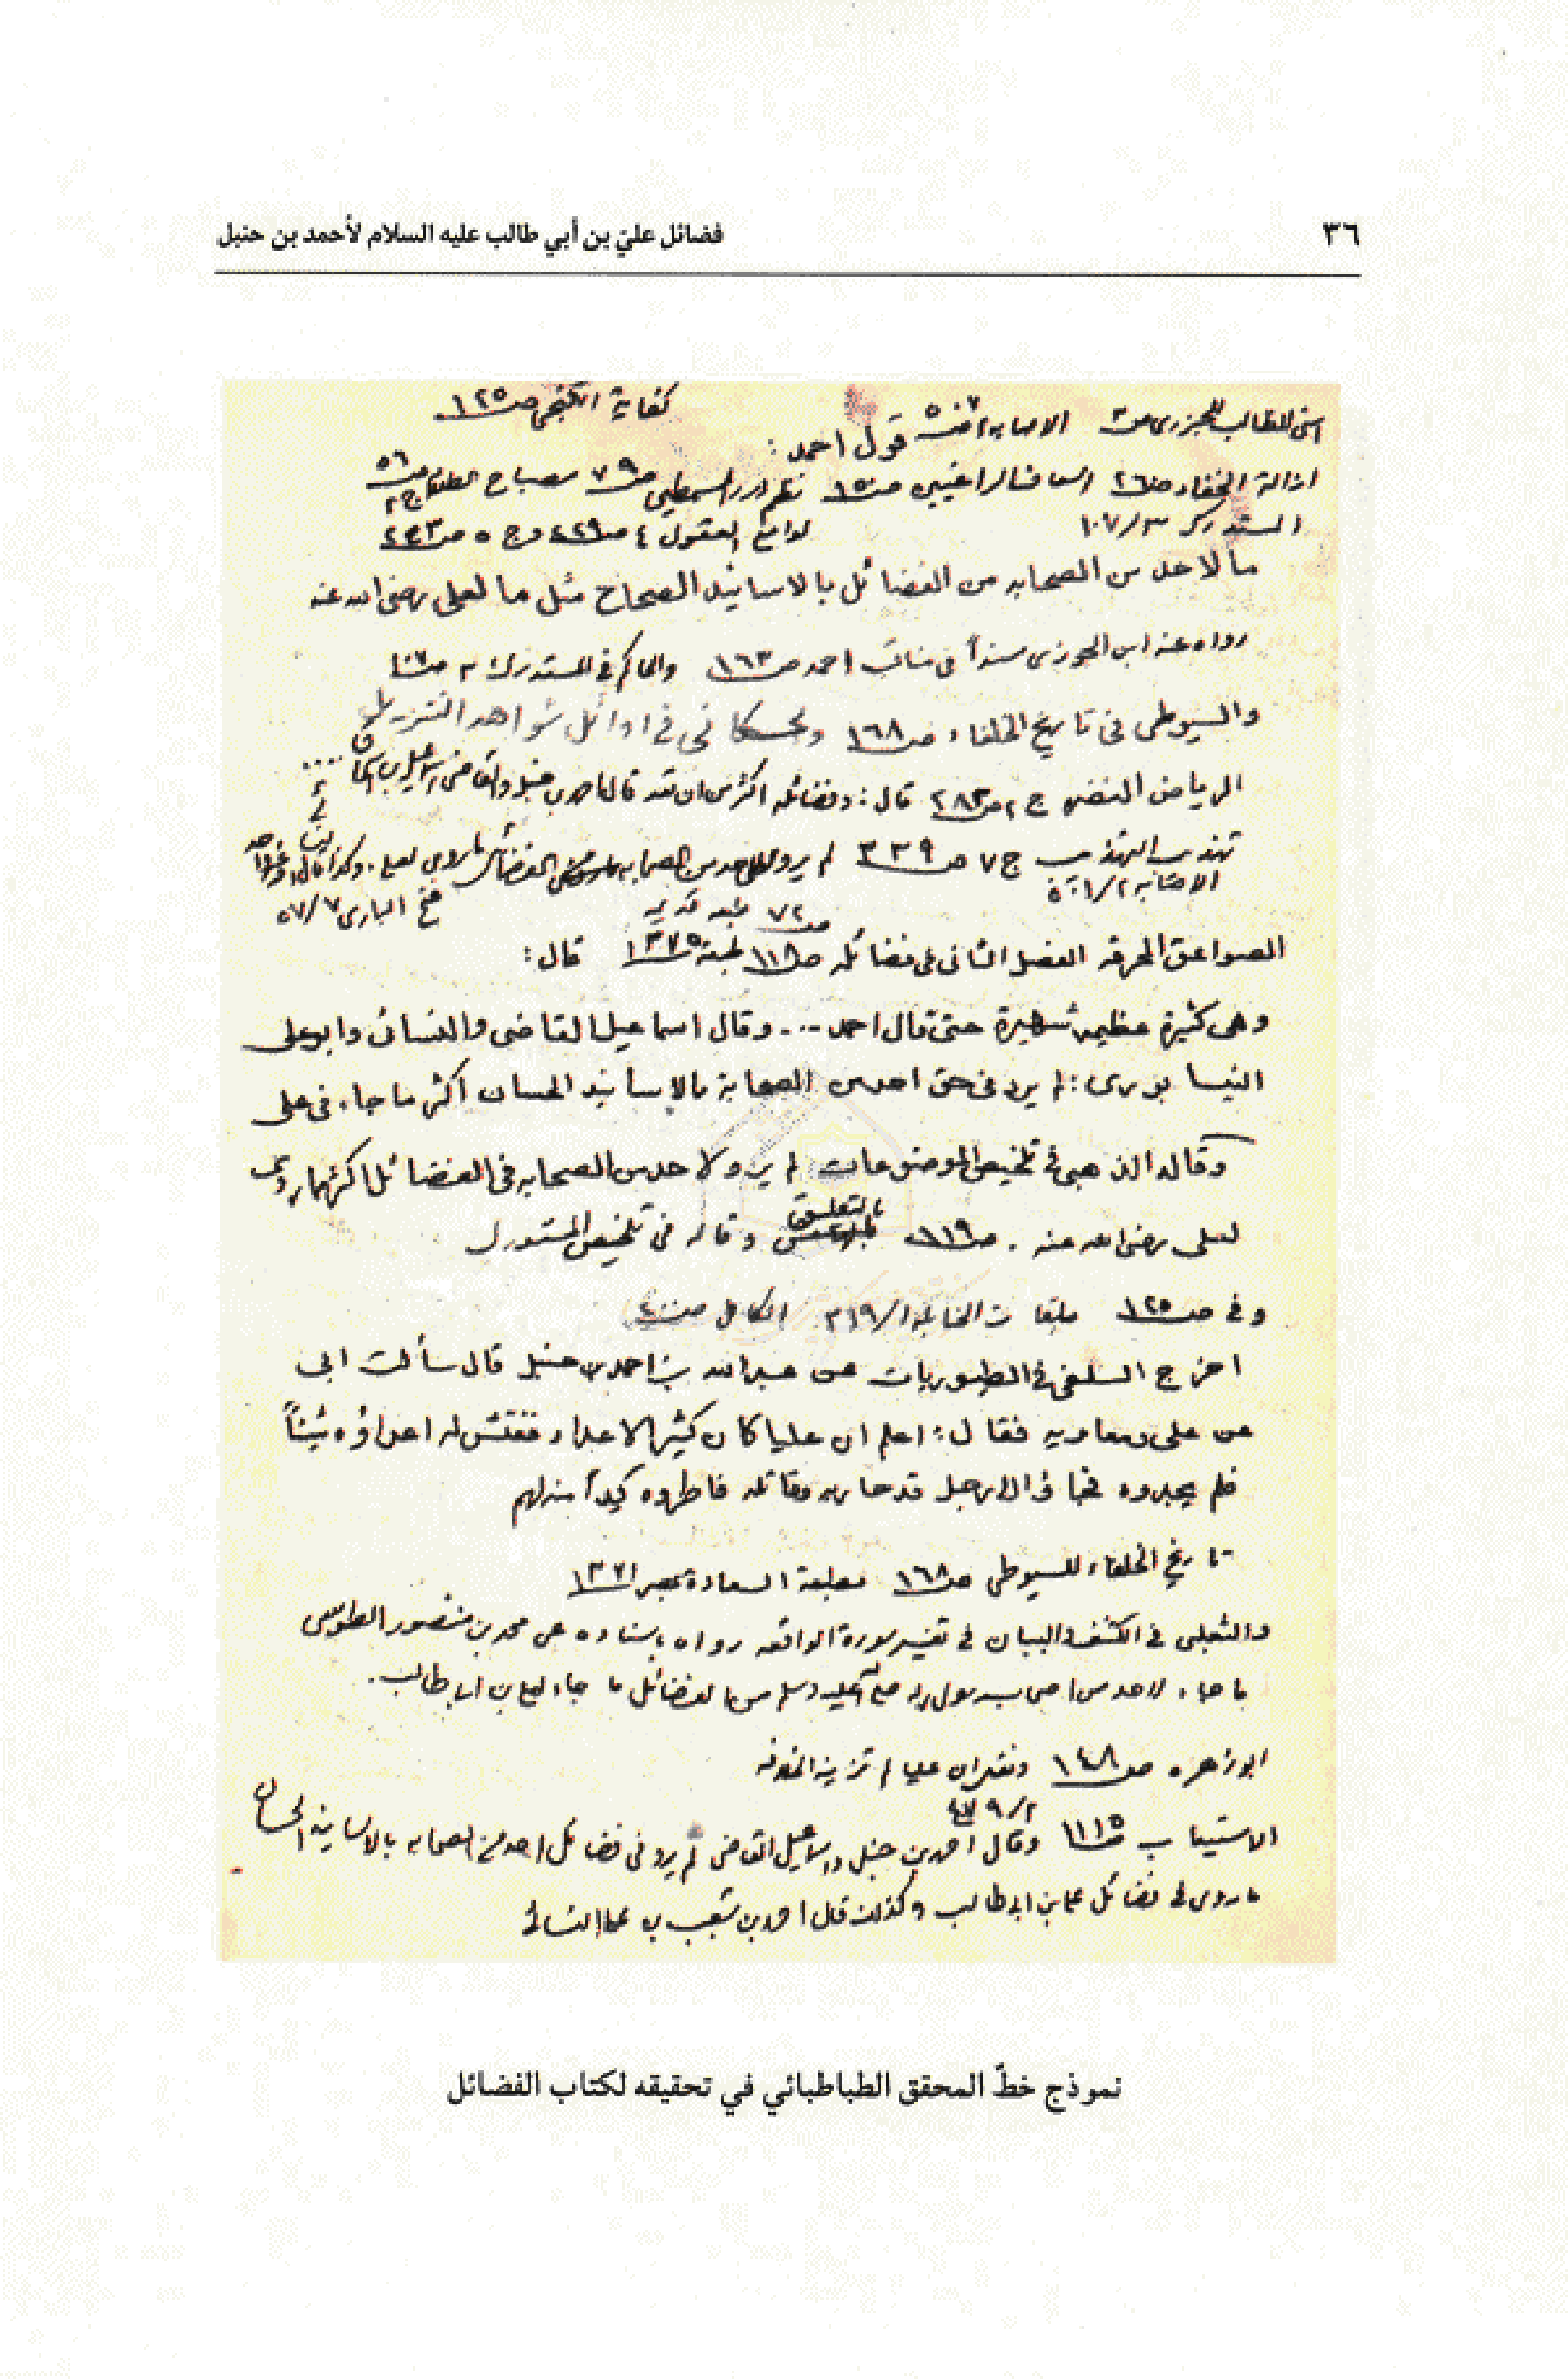 ٣٦
فضائل عليّ بن أبي طالب عليه السلام لأحمد بن حنبل
اسنى المطالب للجزري ص٣ الاصابه ٢ ص٥٠٧ كفاية الكنجي ص١٢٥
قول احمد:
ازالة الخفاء ص٢٦ اسعاف الراغبين ص١٥٠ نظم درر السمطين ص٧٩
المستدرك ١٠٧/٣ لوامع العقول ٤ وج ٥
ما لاحد من الصحابه من الفضائل بالاسانيد الصحاح مثل ما لعلي رضي الله عنه
رواه عنه ابن الجوزي مسنداً في مناقب احمد ص١٦٣ والحاكم في المستدرك ٣
والسيوطي في تاريخ الخلفاء ص١٦٨ والحسكاني في اوائل شواهد التنزيل
الرياض النضره ج ٢ ص٢٨٢ قال: وفضائله اكثر من ان تعد قال احمد بن حنبل والقاضي اسماعيل بن اسحاق ....
تهذيب التهذيب ج ٧ ص٣٣٩ لم يرو لاحد من الصحابه من الفضائل ما روي لعلي. وكذا قال
الاصابه ٥٠١/٢ فتح الباري ٥٧/٧
ص٧٢ طبعه قديمه
الصواعق المحرقه الفصل الثاني في فضائله ص١١٨ طبعة ١٣٧٥ قال:
وهي كثيرة عظيمة شهيرة حتى قال احمد ... وقال اسماعيل القاضي والنسائي وابوعلي
النيسابوري: لم يرد في حق احد من الصحابة بالاسانيد الحسان اكثر ما جاء في علي
وقال الذهبي في تلخيص الموضوعات لم يرو لاحد من الصحابه في الفضائل اكثر مما روي
لعلي رضي الله عنه . ص١١٩ بالتعليق وقاله في تلخيص المستدرك
وفي ص١٢٥ طبقات الحنابلة ٣١٩/١ الكامل
اخرج السلفي في الطيوريات عن عبدالله بن احمد بن حنبل قال سألت ابي
عن علي ومعاويه فقال: اعلم ان عليا كان كثير الاعداء ففتش له اعداؤه شيئاً
فلم يجدوه فجاؤا الى رجل قد حاربه وقاتله فاطروه كيداً منهم
تاريخ الخلفاء للسيوطي ص١٦٨ مطبعة السعادة بمصر ١٣٧١
والثعلبي في الكشف والبيان في تفسير سورة الواقعه رواه باسناده عن محمد بن منصور الطوسي
ما جاء لاحد من اصحاب رسول الله صلى الله عليه وسلم من الفضائل ما جاء لعلي بن ابي طالب.
ابوزهره ص١٤٨ ان عليا لم تزينه الخلافه
الاستيعاب ص١١١٥ وقال احمد بن حنبل واسماعيل القاضي لم يرو في فضائل احد من الصحابه بالاسانيد الحسان
ما روي في فضائل علي بن ابي طالب وكذلك قال احمد بن شعيب بن علي النسائي
نموذج خطّ المحقق الطباطبائي في تحقيقه لكتاب الفضائل